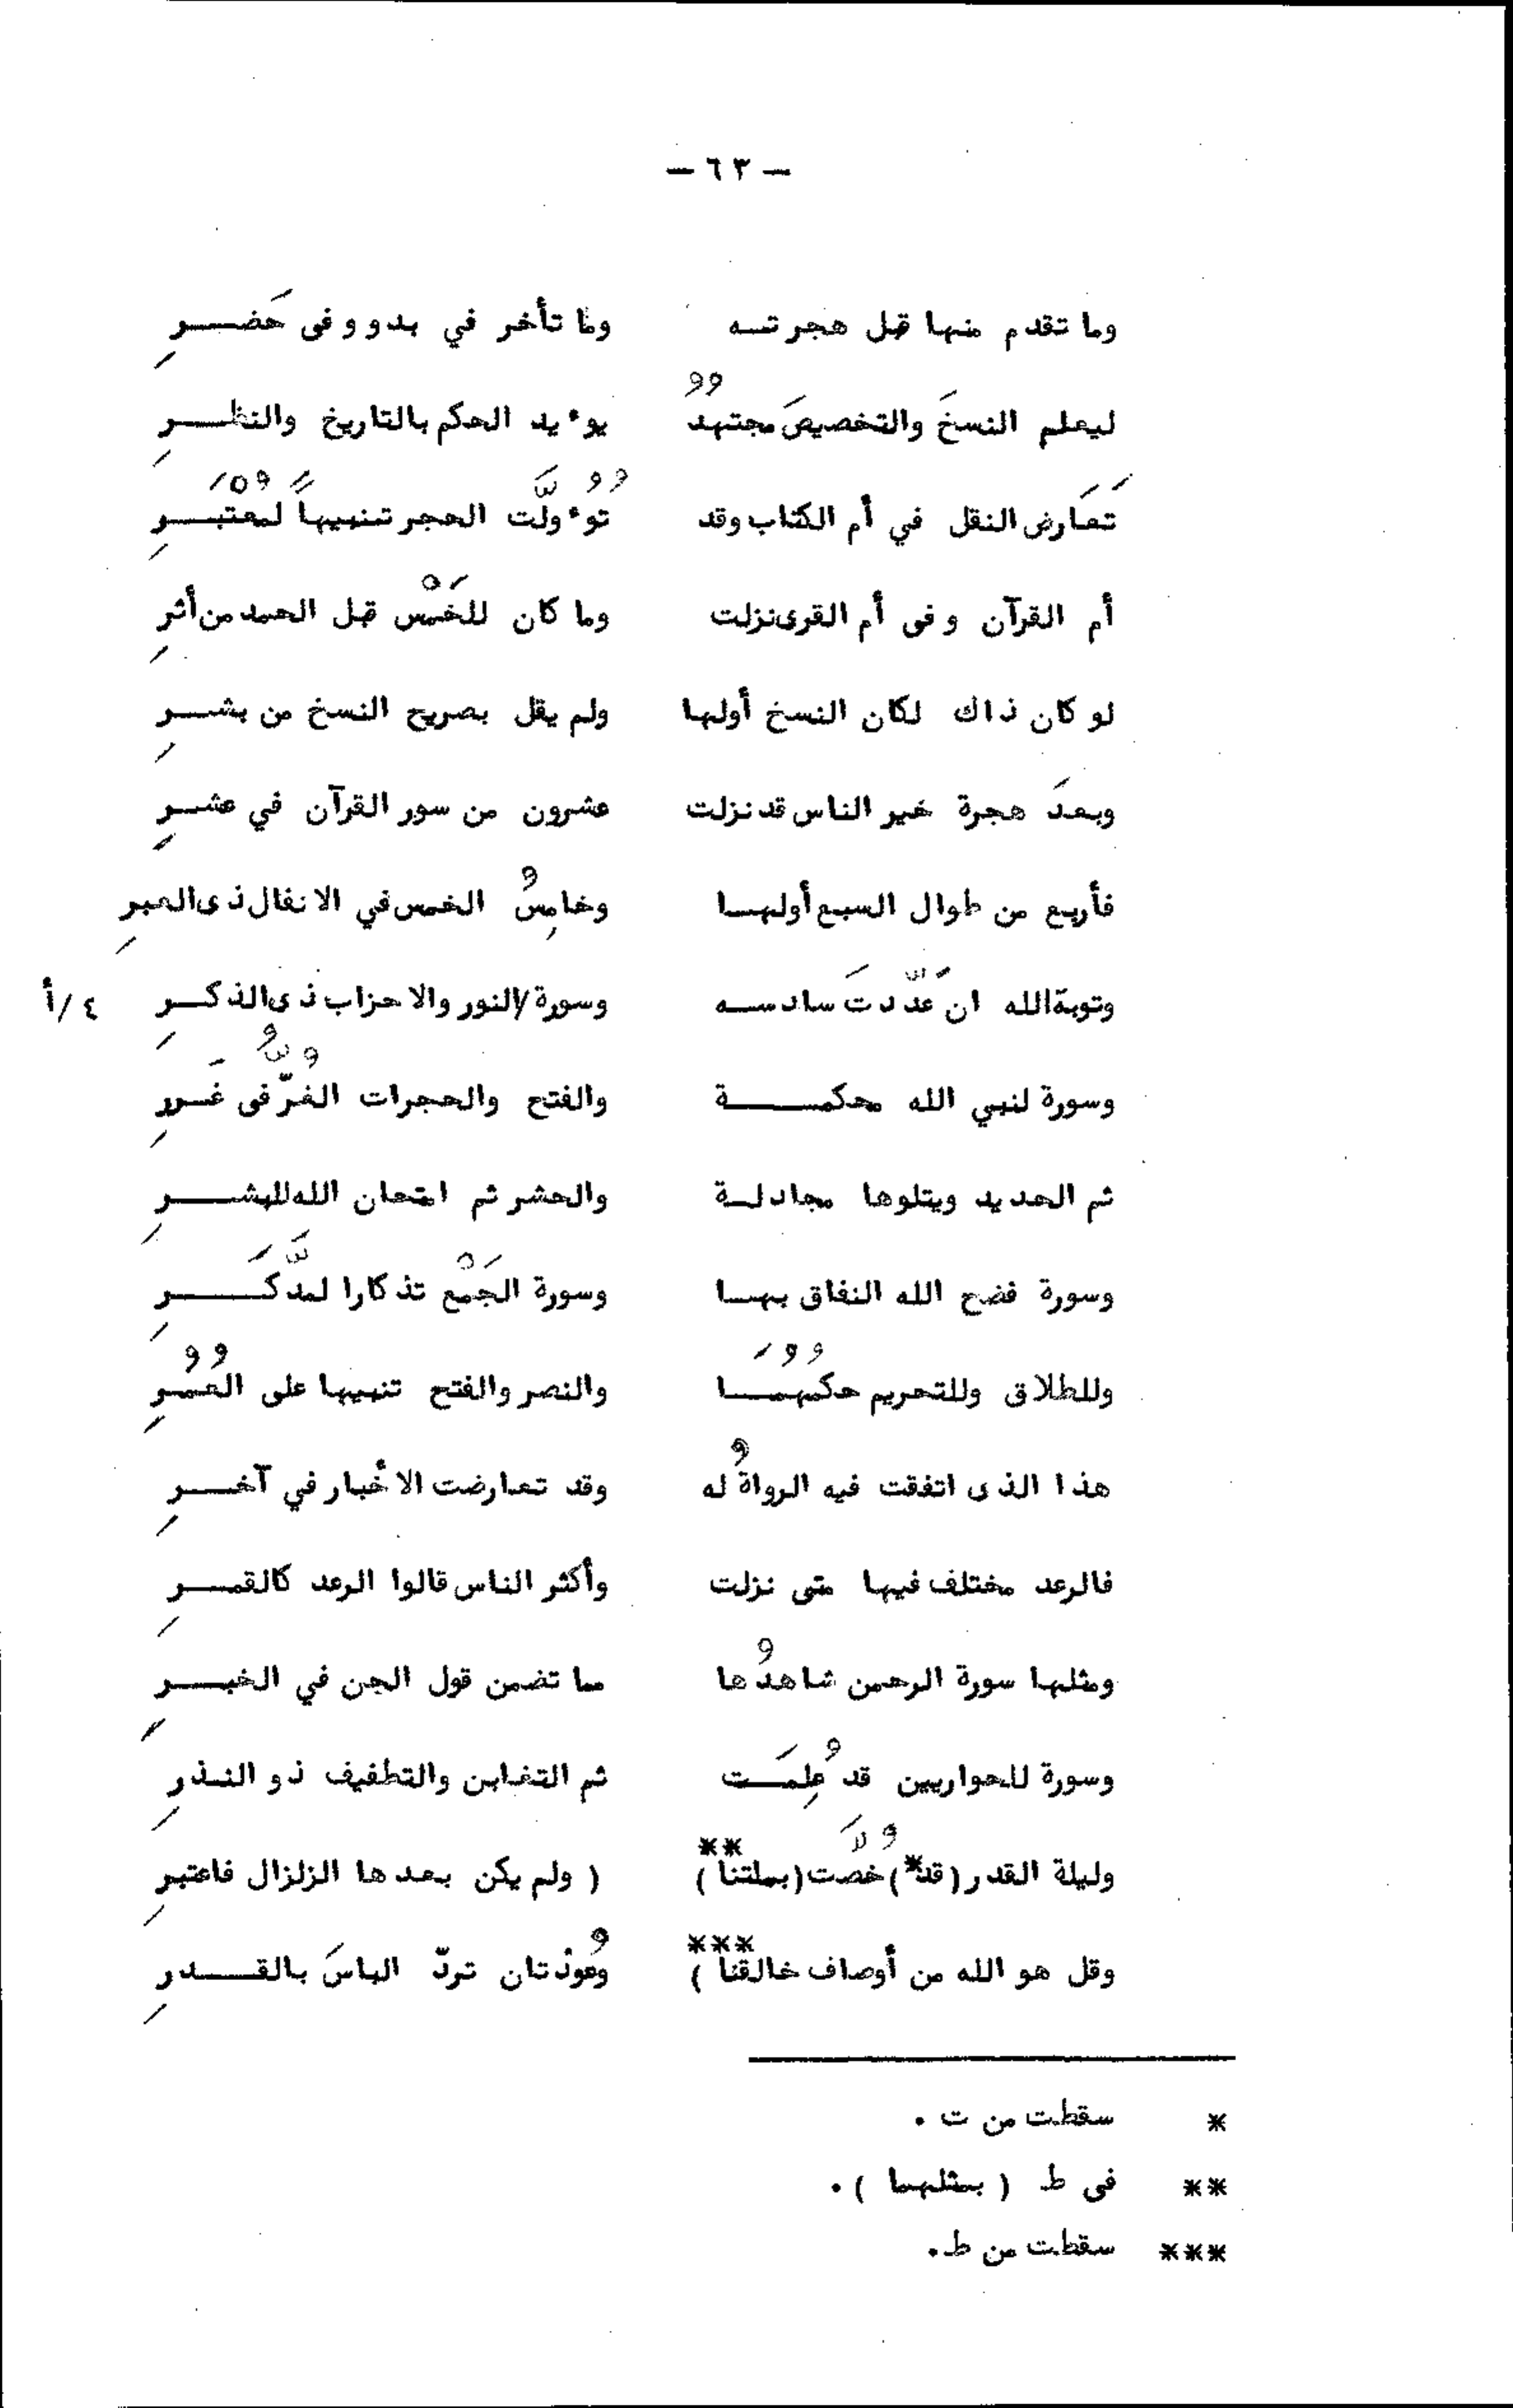 — ٦٣ —
وما تقدم منها قبل هجرتــه وما تأخر في بدو وفى حَضـــرِ
ليعلم النسخَ والتخصيصَ مجتهدُُ يوءيد الحكم بالتاريخ والنظـــرِ
تَعَارض النقل في أم الكتاب وقد تُوءُولَّت الحجر تنبيهاً لمُعْتَبـــرِ
أم القرآن وفى أم القرى نزلت وما كان للخَمْس قبل الحمد من أثرِ
لو كان ذاك لكان النسخ أولها ولم يقل بصريح النسخ من بشـــرِ
وبعدَ هجرة خير الناس قد نزلت عشرون من سور القرآن في عشـــرِ
فأربع من طوال السبع أولهــا وخامِسُ الخمس في الانفال ذى العبرِ
وتوبة الله ان عَدّدتَ سادســه وسورة/النور والاحزاب ذى الذكــرِ ٤/أ
وسورة لنبي الله محكمـــــة والفتح والحجرات الغُرُّ فى غَـــررِ
ثم الحديد ويتلوها مجادلــة والحشر ثم امتحان الله للبشـــرِ
وسورة فضح الله النفاق بهــا وسورة الجَمْع تذكارا لمدَّكَـــرِ
وللطلاق وللتحريم حُكمُهَمــا والنصر والفتح تنبيها على العُمُــرِ
هذا الذى اتفقت فيه الرواةُ له وقد تعارضت الأخبار في آخـــرِ
فالرعد مختلف فيها متى نزلت وأكثر الناس قالوا الرعد كالقمـــرِ
ومثلها سورة الرحمن شاهدُها مما تضمن قول الجن في الخبـــرِ
وسورة للحواريين قد عُلِمَــت ثم التغابن والتطفيف ذو النــذرِ
وليلة القدر (قد*) خُصَّت (بملتنا**) ( ولم يكن بعدها الزلزال فاعتبرِ
وقل هو الله من أوصاف خالقنا***) وعُوذتان تردّ الباسَ بالقـــدرِ
* سقطت من ت .
** فى ط ( بمثلهما ) .
*** سقطت من ط.